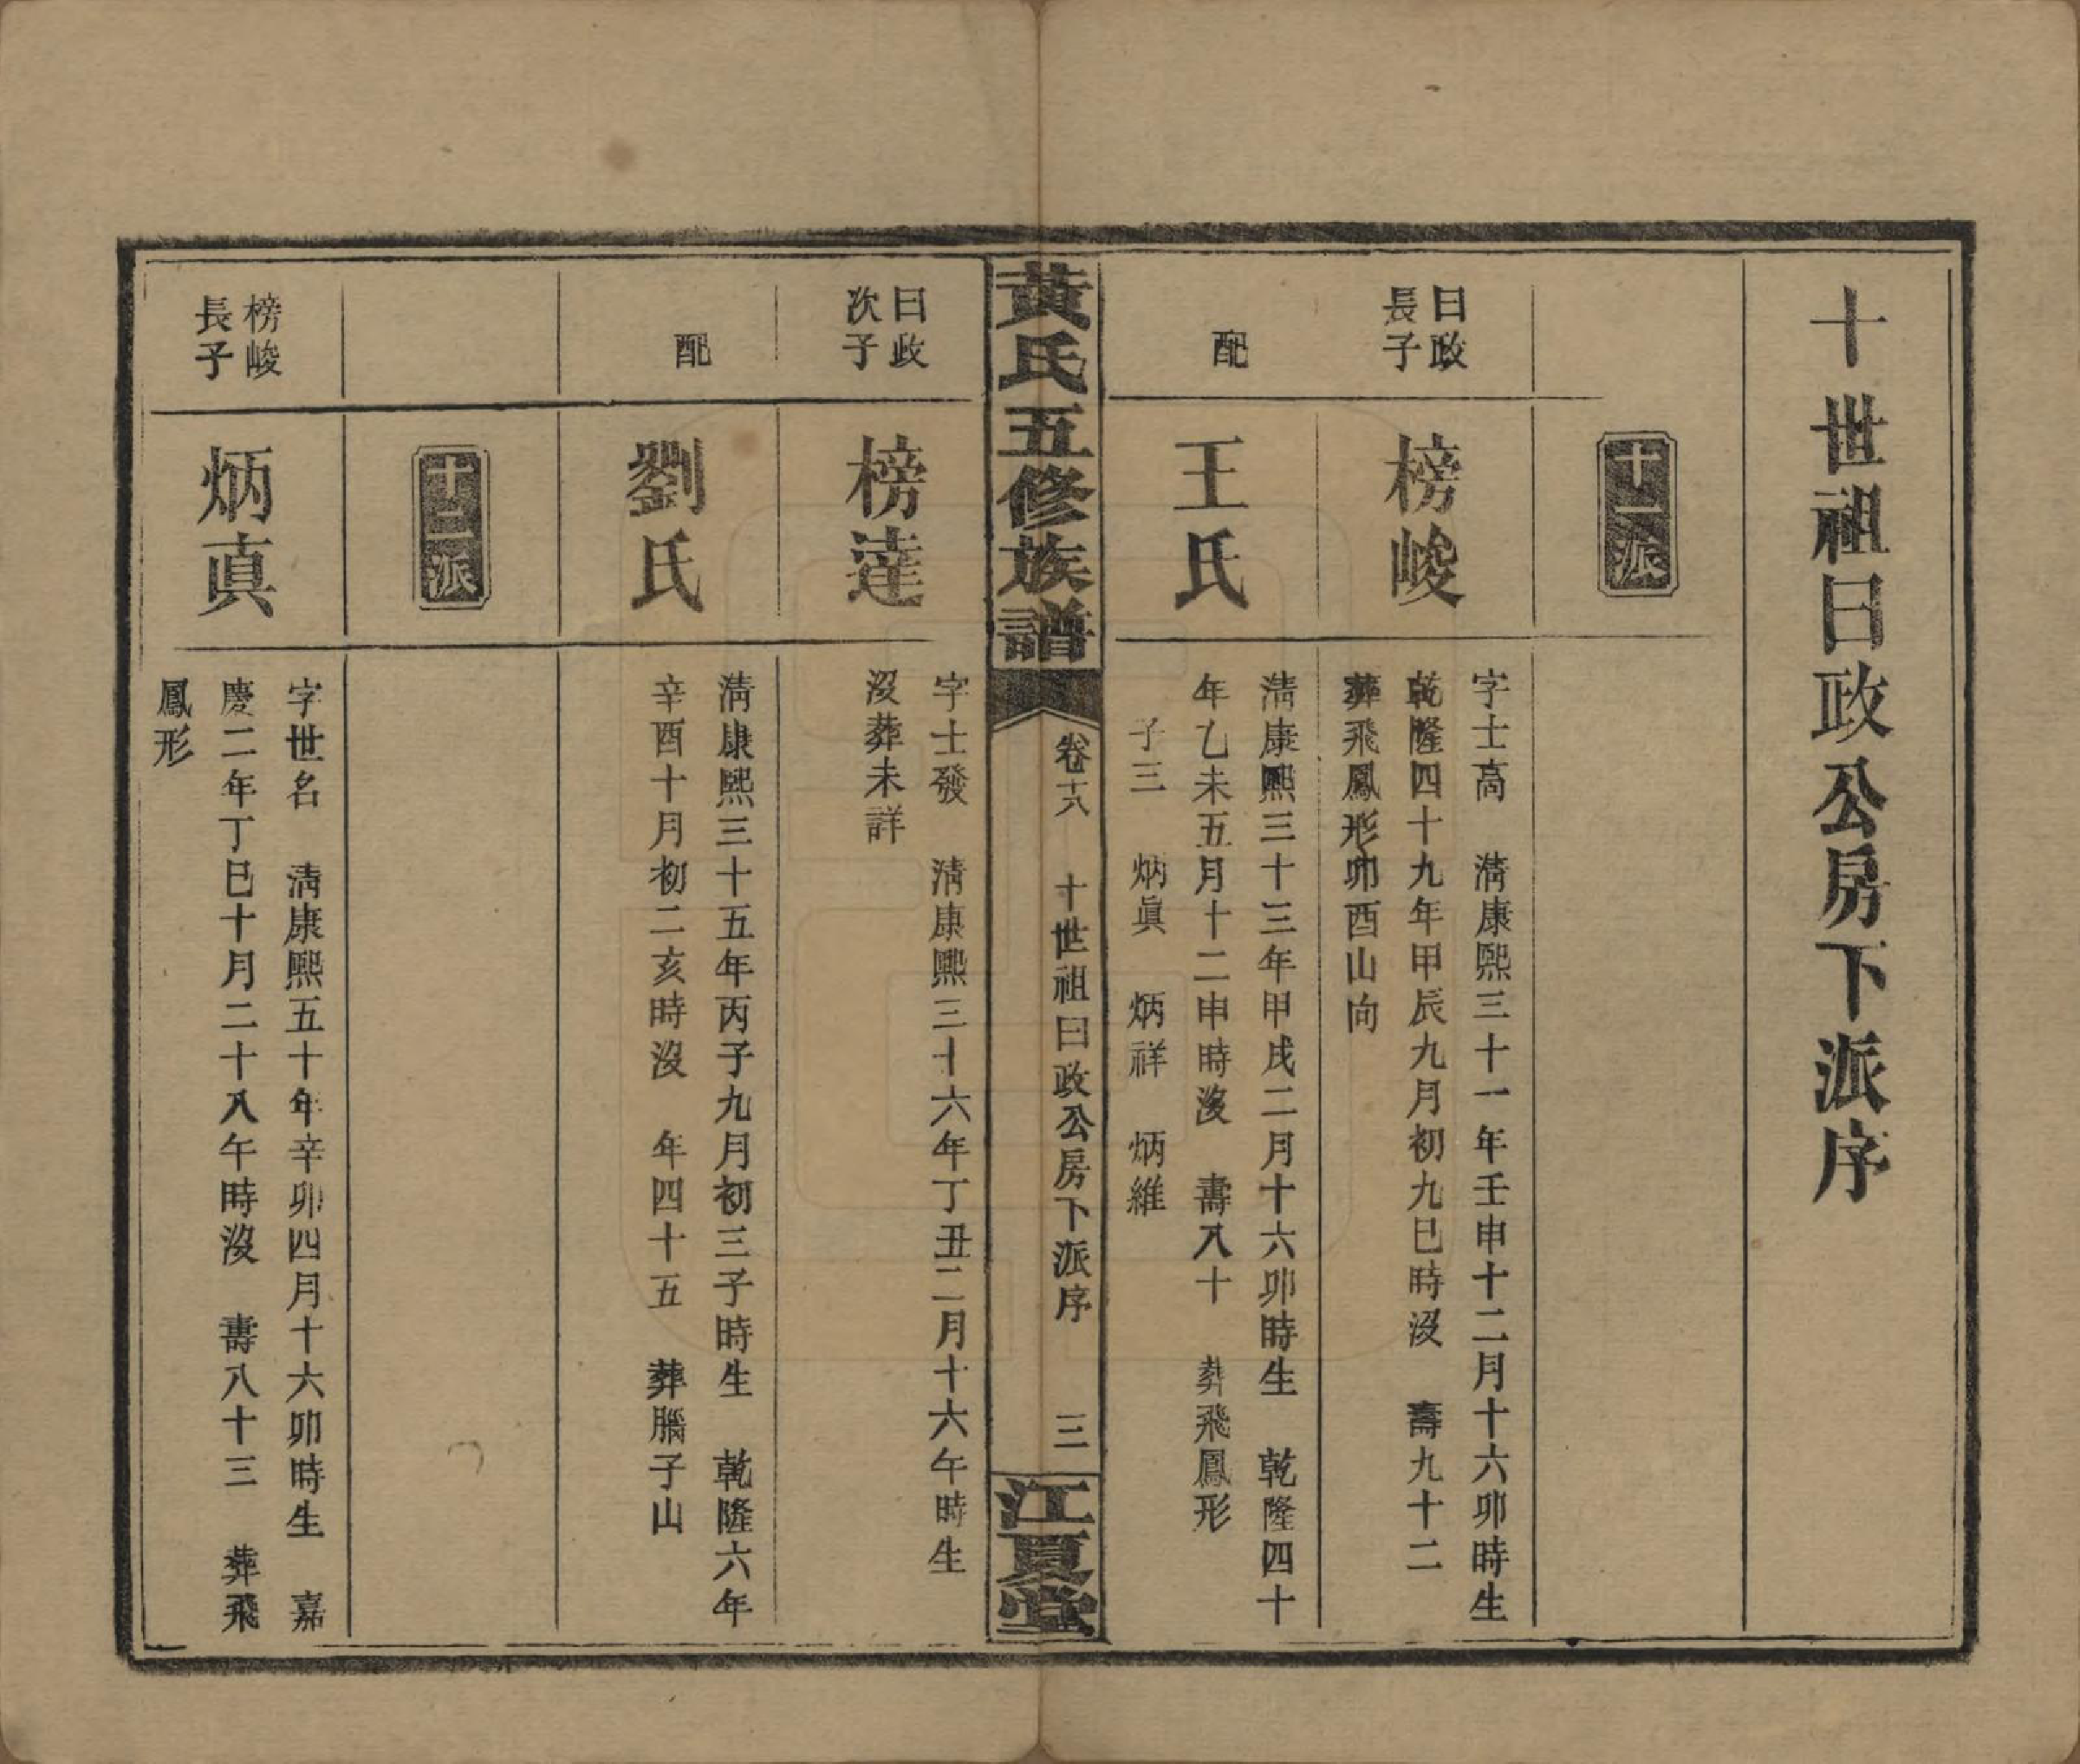 十世祖曰政公房下派序
十一派
曰政
長子
榜峻
字士高　淸康熙三十一年壬申十二月十六卯時生
乾隆四十九年甲辰九月初九巳時沒　壽九十二
葬飛鳳形卯酉山向
配
王氏
淸康熙三十三年甲戌二月十六卯時生　乾隆四十
年乙未五月十二申時沒　壽八十　葬飛鳳形
子三　炳眞　炳祥　炳維
黃氏五修族譜
卷十八　十世祖曰政公房下派序　三
江夏堂
曰政
次子
榜達
字士發　淸康熙三十六年丁丑二月十六午時生
沒葬未詳
配
劉氏
淸康熙三十五年丙子九月初三子時生　乾隆六年
辛酉十月初二亥時沒　年四十五　葬腦子山
十二派
榜峻
長子
炳眞
字世名　淸康熙五十年辛卯四月十六卯時生　嘉
慶二年丁巳十月二十八午時沒　壽八十三　葬飛
鳳形